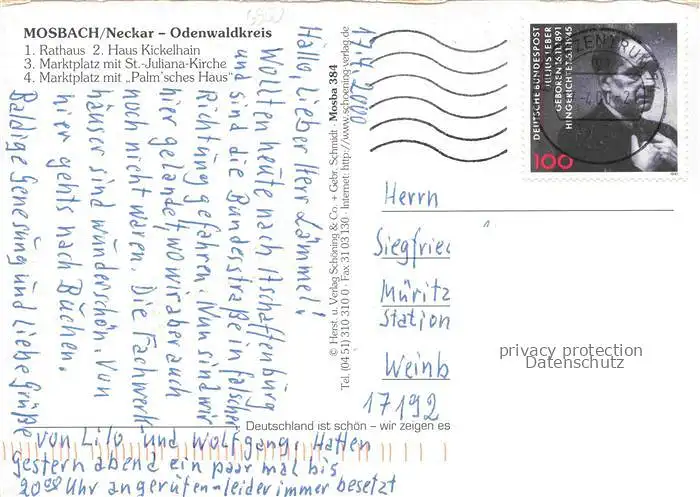 MOSBACH/Neckar – Odenwaldkreis
1. Rathaus 2. Haus Kickelhain
3. Marktplatz mit St.-Juliana-Kirche
4. Marktplatz mit „Palm'sches Haus"
© Herst. u. Verlag Schöning & Co. + Gebr. Schmidt · Mosba 384
Tel. (04 51) 310 310 0 · Fax 31 03 130 · Internet: http://www.schoening-verlag.de
17.4.2000
Hallo, lieber Herr Lämmel!
Wollten heute nach Aschaffenburg
und sind die Bundesstraße in falscher
Richtung gefahren. Nun sind wir
hier gelandet, wo wir aber auch
noch nicht waren. Die Fachwerk
häuser sind wunderschön. Von
hier gehts nach Buchen.
Baldige Genesung und liebe Grüße
von Lilo und Wolfgang. Hatten
gestern abend ein paar mal bis
20 Uhr angerufen-leider immer besetzt
DEUTSCHE BUNDESPOST
JULIUS LEBER
GEBOREN 16.11.1891
HINGERICHTET 5.1.1945
100
ZENTRUM
Herrn
Siegfried
Müritz
Station
Weinb
17192
privacy protection
Datenschutz
Deutschland ist schön – wir zeigen es